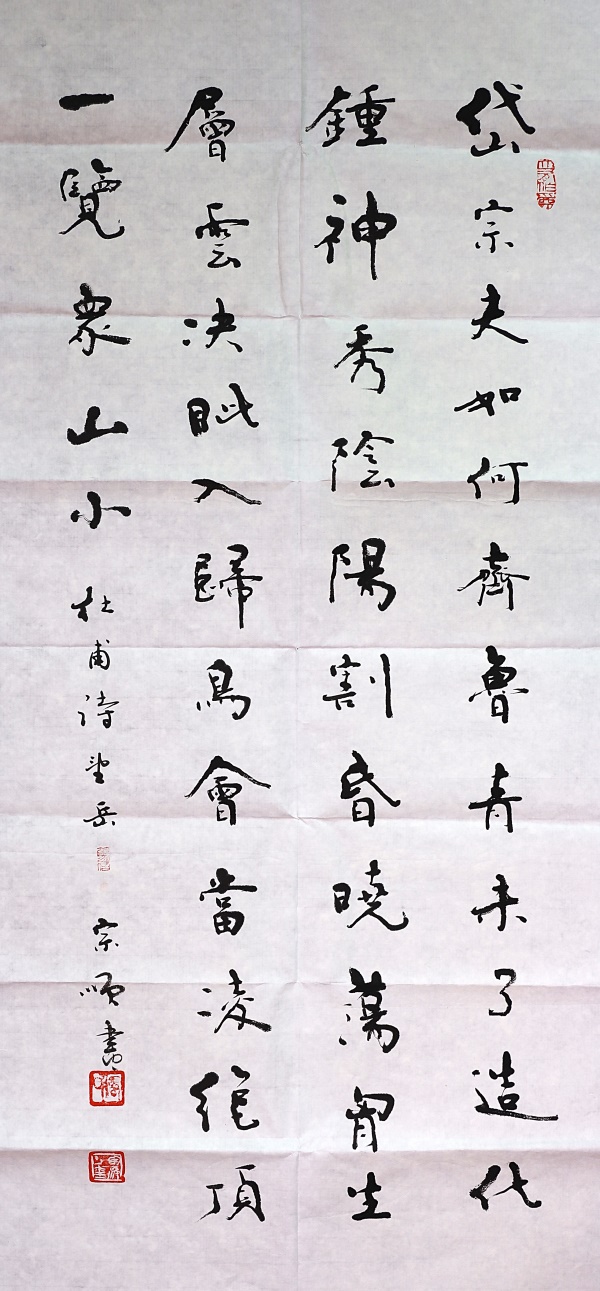 岱宗夫如何齊魯青未了造化
鍾神秀陰陽割昏曉蕩胷生
層雲决眦入歸鳥會當凌絕頂
一覽眾山小 杜甫詩望岳 宗順書